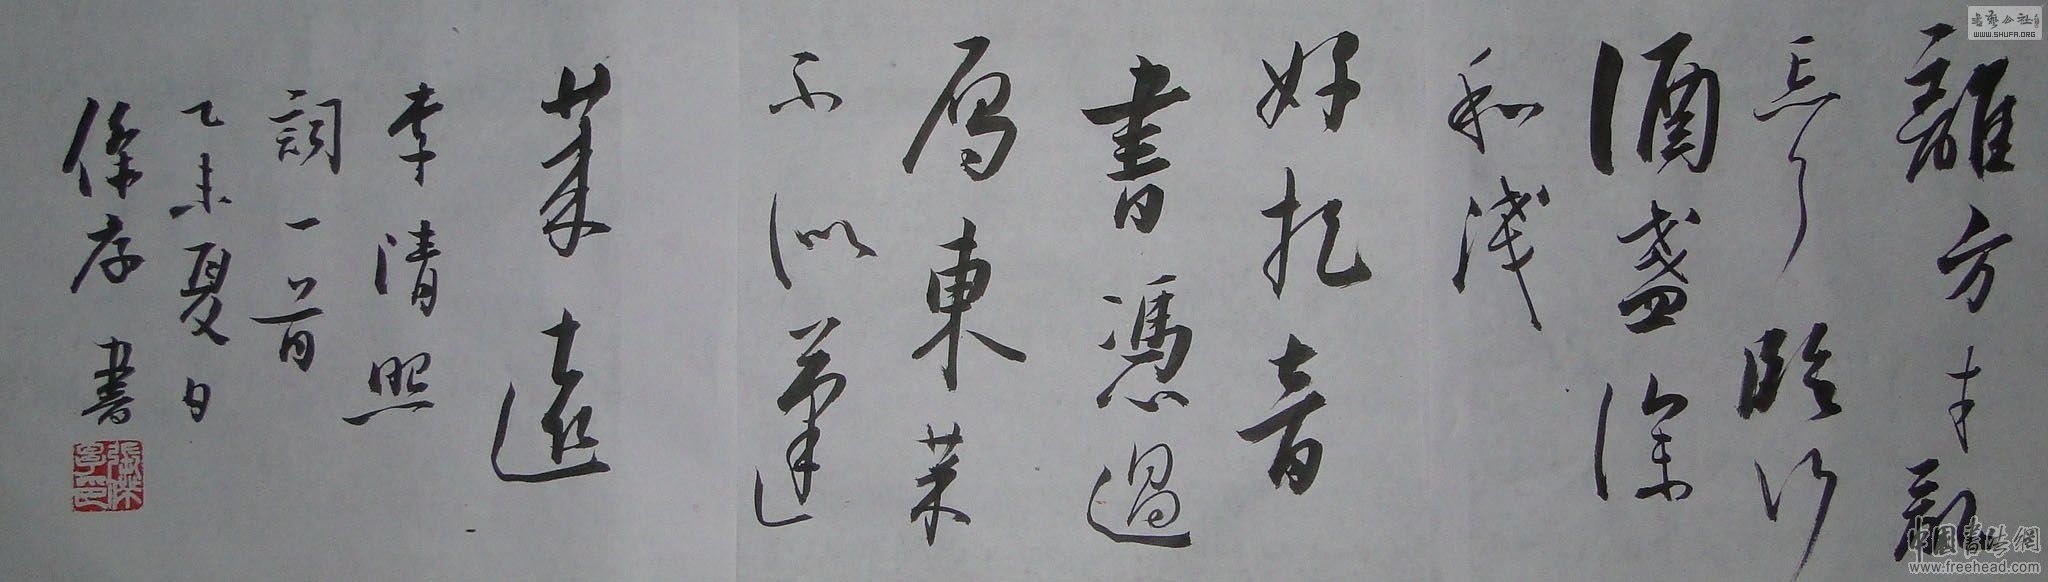 離方寸亂
忘了臨行
酒盞深
和淺
好把音
書憑過
鴈東萊
不似蓬
萊遠
李清照
詞一首
乙未夏日
書
书艺公社
WWW.SHUFA.ORG
中国書法網
www.freehead.com